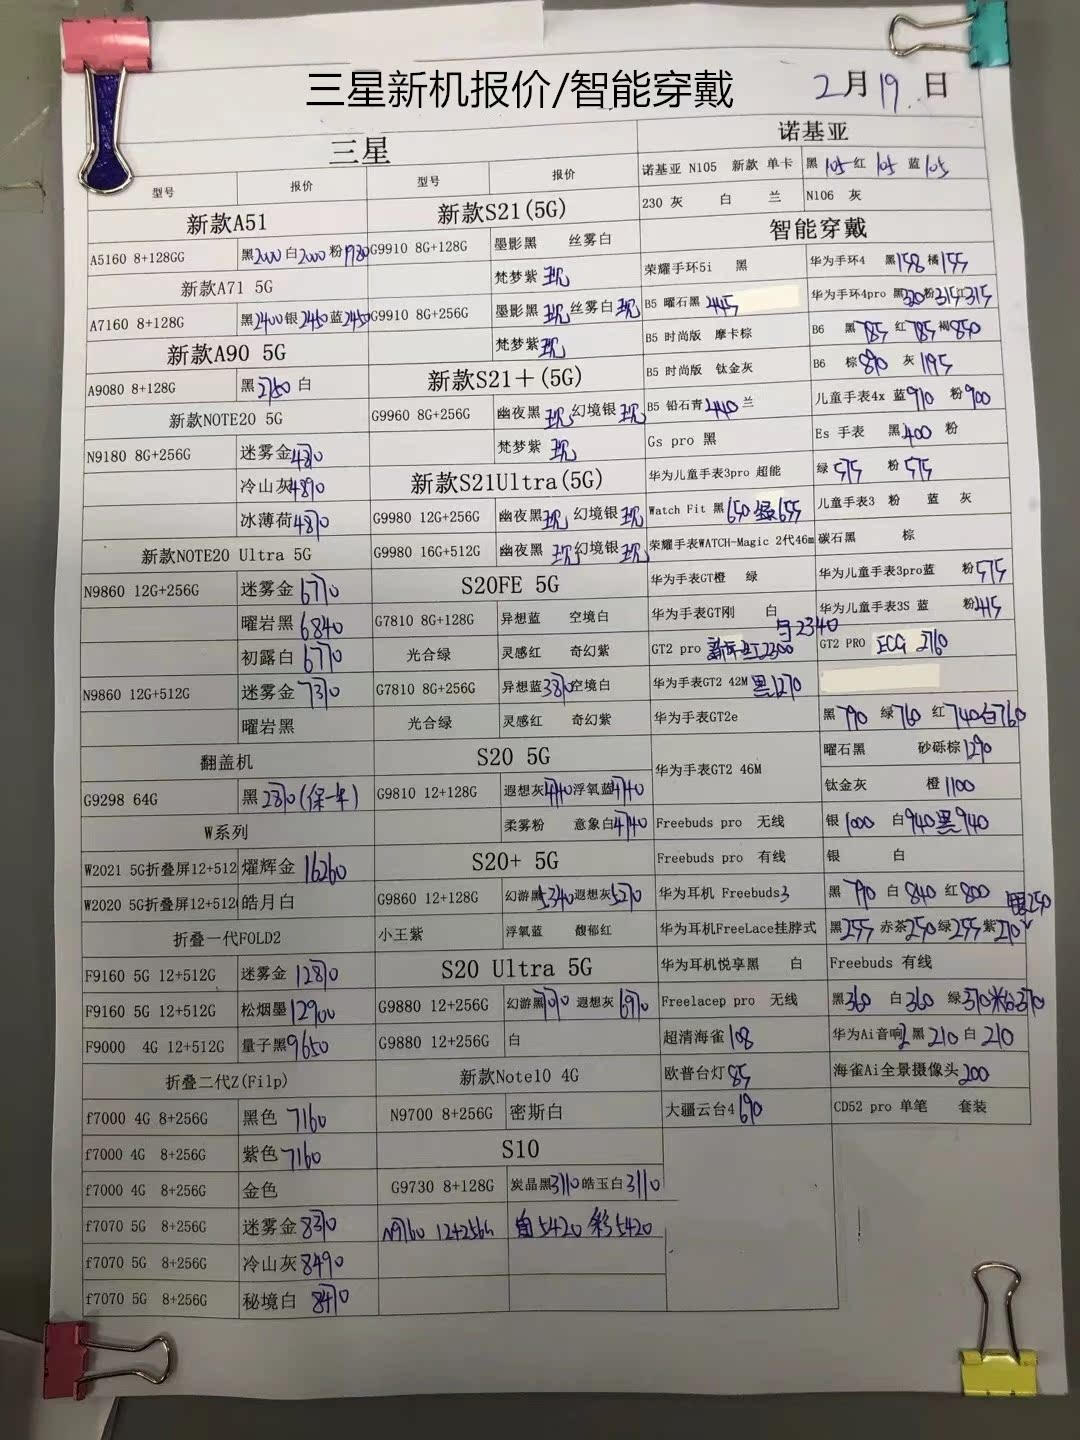 三星新机报价/智能穿戴
2月19日
三星
型号 报价 型号 报价
新款A51 新款S21(5G)
A5160 8+128GG 黑2000 白2000 粉1980 G9910 8G+128G 墨影黑 丝雾白
新款A71 5G 梵梦紫 现
A7160 8+128G 黑2400 银2450 蓝2450 G9910 8G+256G 墨影黑 现 丝雾白 现
新款A90 5G 梵梦紫 现
A9080 8+128G 黑2750 白 新款S21＋(5G)
新款NOTE20 5G G9960 8G+256G 幽夜黑 现 幻境银 现
N9180 8G+256G 迷雾金 梵梦紫 现
冷山灰 新款S21Ultra(5G)
冰薄荷 G9980 12G+256G 幽夜黑 现 幻境银 现
新款NOTE20 Ultra 5G G9980 16G+512G 幽夜黑 现 幻境银 现
N9860 12G+256G 迷雾金 6770 S20FE 5G
曜岩黑 6840 G7810 8G+128G 异想蓝 空境白
初露白 6770 光合绿 灵感红 奇幻紫
N9860 12G+512G 迷雾金 G7810 8G+256G 异想蓝 空境白
曜岩黑 光合绿 灵感红 奇幻紫
翻盖机 S20 5G
G9298 64G 黑 (保一年) G9810 12+128G 遐想灰4740 浮氧蓝4740
W系列 柔雾粉 意象白4740
W2021 5G折叠屏12+512 燿辉金 16260 S20+ 5G
W2020 5G折叠屏12+512 皓月白 G9860 12+128G 幻游黑5340 遐想灰5270
折叠一代FOLD2 小王紫 浮氧蓝 馥郁红
F9160 5G 12+512G 迷雾金 S20 Ultra 5G
F9160 5G 12+512G 松烟墨 12900 G9880 12+256G 幻游黑 遐想灰6970
F9000 4G 12+512G 量子黑9650 G9880 12+256G 白
折叠二代Z(Filp) 新款Note10 4G
f7000 4G 8+256G 黑色 7160 N9700 8+256G 密斯白
f7000 4G 8+256G 紫色 7160 S10
f7000 4G 8+256G 金色 G9730 8+128G 炭晶黑3110 皓玉白3110
f7070 5G 8+256G 迷雾金 N9760 12+256G 白5420 彩5420
f7070 5G 8+256G 冷山灰 8490
f7070 5G 8+256G 秘境白
诺基亚
诺基亚 N105 新款 单卡 黑 105 红 105 蓝 105
230 灰 白 兰 N106 灰
智能穿戴
荣耀手环5i 黑 华为手环4 黑158 橘155
B5 曜石黑 445 华为手环4pro 黑320 粉315 红315
B5 时尚版 摩卡棕 B6 黑785 红785 褐850
B5 时尚版 钛金灰 B6 棕 灰 1195
B5 铅石青 440 兰 儿童手表4x 蓝910 粉900
Gs pro 黑 Es 手表 黑400 粉
华为儿童手表3pro 超能 绿 575 粉 575
Watch Fit 黑650 绿655 儿童手表3 粉 蓝 灰
荣耀手表WATCH-Magic 2代46m 碳石黑 棕
华为手表GT橙 绿 华为儿童手表3pro蓝 粉575
华为手表GT刚 白 华为儿童手表3S 蓝 粉415
2340
GT2 pro 新年红2300 GT2 PRO ECG 2760
华为手表GT2 42M 黑1270
华为手表GT2e 黑 790 绿 760 红740 白760
华为手表GT2 46M 曜石黑 砂砾棕1290
钛金灰 橙 1100
Freebuds pro 无线 银 1000 白940 黑940
Freebuds pro 有线 银 白
华为耳机 Freebuds3 黑 790 白 840 红 800
250
华为耳机FreeLace挂脖式 黑255 赤茶250 绿255 紫210
华为耳机悦享黑 白 Freebuds 有线
Freelacep pro 无线 黑360 白 360 绿370
超清海雀 108 华为Ai音响2 黑210 白 210
欧普台灯 85 海雀Ai全景摄像头200
大疆云台4 690 CD52 pro 单笔 套装